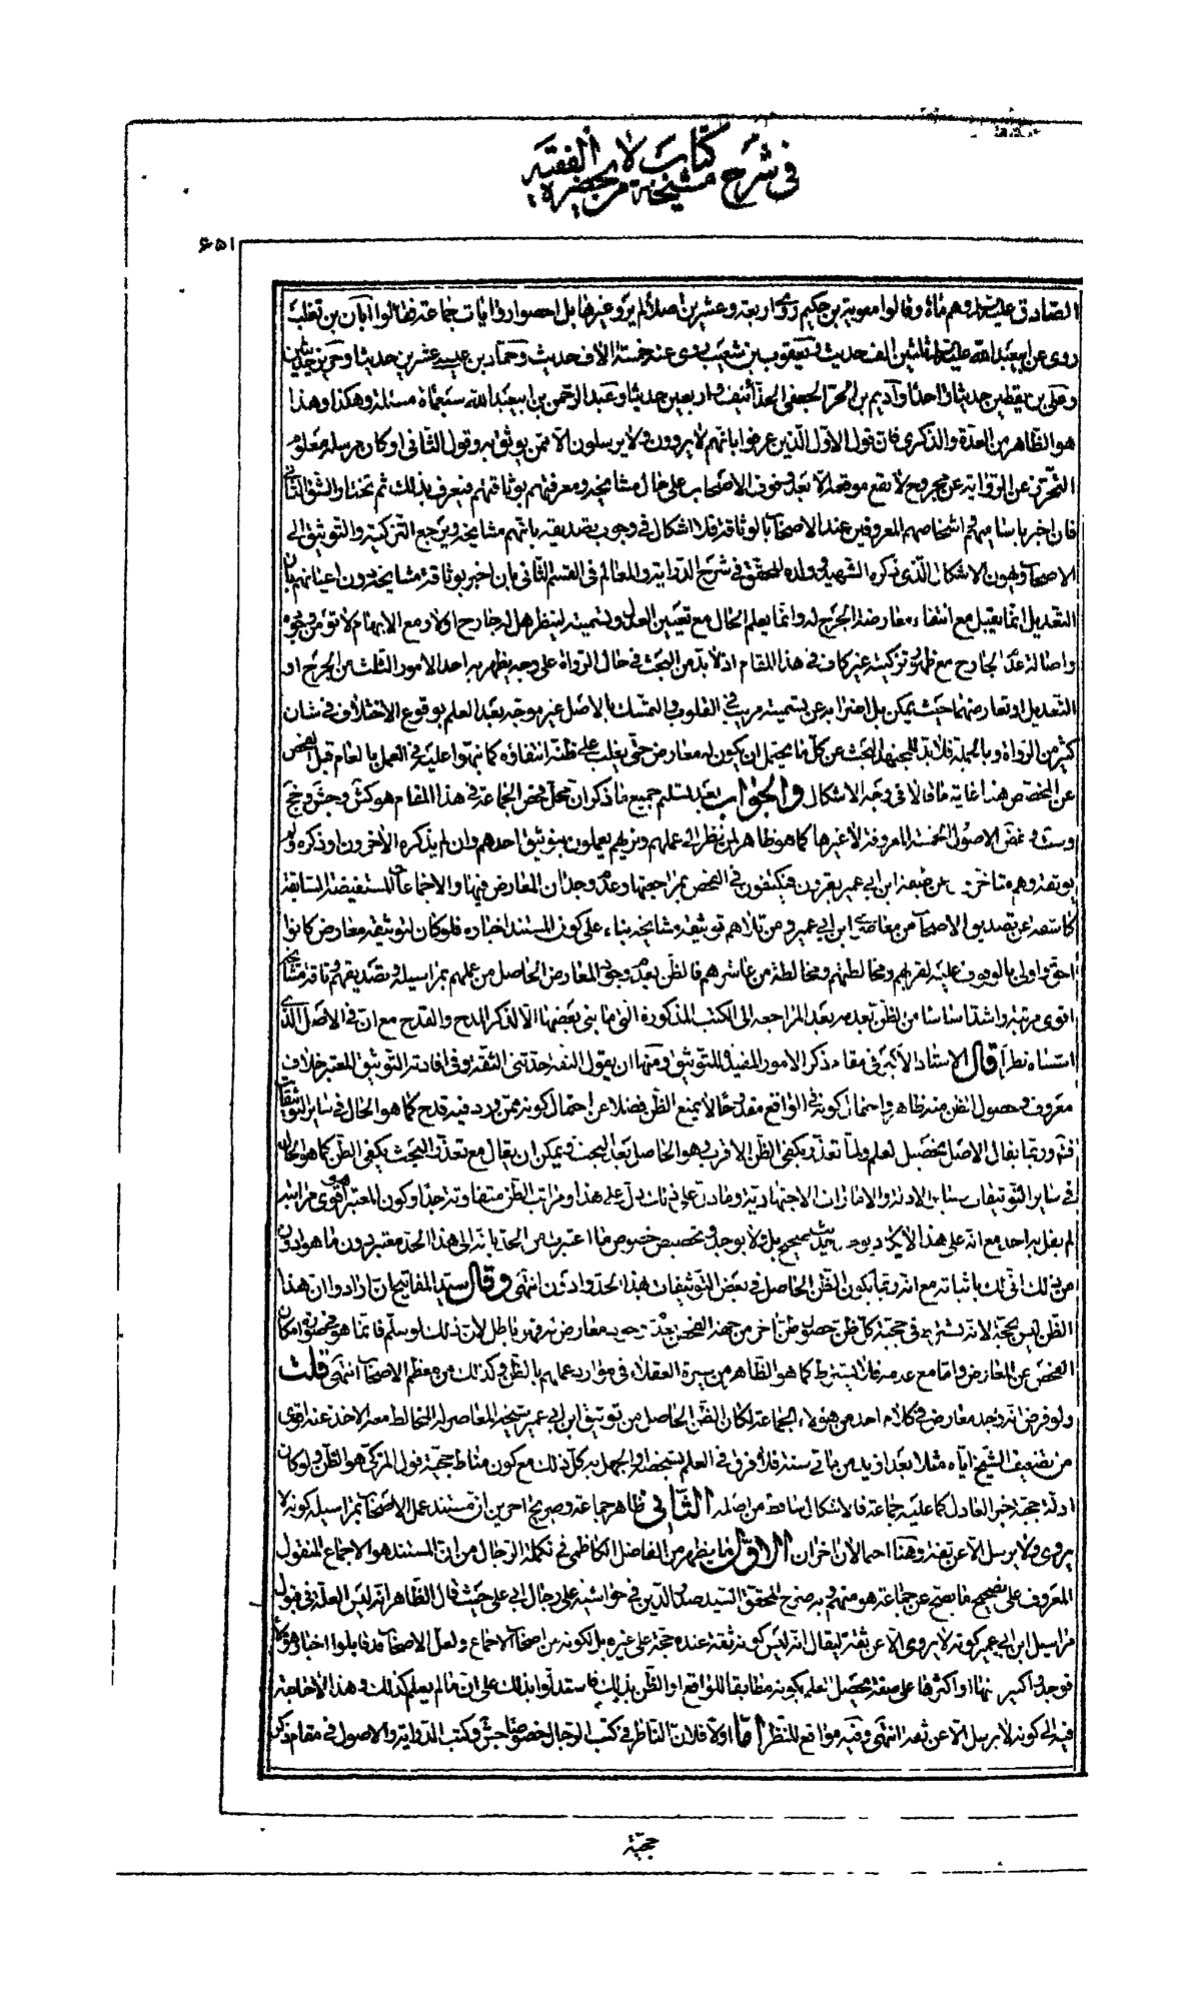 في شرح مشيخة كتاب من لا يحضره الفقيه
۶۵۱
الصادق عليه السلام وهم مائة وقالوا معوية بن حكيم روى اربعة وعشرين اصلا لم يرو غيرها بل احصوا روايات جماعة فقالوا ابان بن تغلب
روى عن ابيعبد الله عليه السلام ثلثين الف حديث يعقوب بن شعيب روى عنه خمسة الاف حديث وحماد بن عيسى عشرين حديثا وحريز حديثين
وعلى بن يقطين حديثا واحدا وآديم بن الحر الجعفى الحذاء نيف واربعين حديثا وعبد الرحمن بن ابيعبد الله سبعمائة مسئلة وهكذا وهذا
هو الظاهر من العدة والذكرى فان قول الاول الذين عرفوا بانهم لا يروون ولا يرسلون الا ممن يوثق به وقول الثانى او كان مرسله معلوم
التحرز عن الرواية عن مجروح لا يقع موقعه الا بعد وقوف الاصحاب على حال مشايخه ومعرفتهم بوثاقتهم فيعرف بذلك ثم نختار الشق الثانى
فان اخبر باساميهم اشخاصهم المعروفين عند الاصحاب بالوثاقة فلا اشكال في وجوب تصديقه بانهم مشايخه ويرجع التزكية والتوثيق الى
الاصحاب ويهون الاشكال الذى ذكره الشهيد وولده المحقق في شرح الدراية والمعالم في القسم الثانى بان اخبر بوثاقة مشايخه دون اعيانهم بان
التعديل انما يقبل مع انتفاء معارضة الجرح له وانما يعلم الحال مع تعيين المعدل وتسميته لينظر هل له جارح او لا ومع الابهام لا تؤمن وجوده
واصالة عدم الجارح مع ظهور تزكيته غير كاف في هذا المقام اذ لا بد من البحث في حال الرواة على وجه يظهر به احد الامور الثلث من الجرح او
التعديل او تعارضهما حيث يمكن بل اضرابه عن تسميته مريب في القلوب والتمسك بالاصل غير موجه بعد العلم بوقوع الاختلاف في شان
كثير من الرواة وبالجملة فلا بد للمجتهد البحث عن كل ما يحتمل ان يكون له معارض حتى يغلب على ظنه انتفاؤه كما نبهوا عليه في العمل بالعام قبل الفحص
عن المخصص هذا غاية ما قالا في وجه الاشكال والجواب بعد تسليم جميع ما ذكر ان محل فحص الجماعة في هذا المقام هو كش وجش وخج
وست وغض الاصول الخمسة المعروفة لا غيرها كما هو ظاهر لمن نظر الى عملهم وتريهم يعملون بتوثيق احدهم وان لم يذكره الاخرون او ذكره ولم
يوثقه وهم متاخرون عن طبقة ابن ابي عمير بقرون فيكتفون في الفحص بمراجعتها وعدم وجدان المعارض فيها والاجماعات المستفيضة السابقة
كاشفة عن تصديق الاصحاب من معاصرى ابن ابي عمير ومن تلاهم توثيقه مشايخه بناء على كون المستند اخباره فلو كان لتوثيقه معارض كانوا
احق واولى بالوقوف عليه لقربهم ومخالطتهم ومخالطة من عاشرهم فالظن بعدم وجود المعارض الحاصل من عملهم بمراسيله وتصديقهم وثاقة مشايخه
اقوى مرتبة واشد اساسا من الظن بعدمه بعد المراجعه الى الكتب المذكورة التى ما بنى بعضها الا لذكر المدح والقدح مع ان في الاصل الذى
اسسناه نظرا قال الاستاد الاكبر في مقام ذكر الامور المفيدة للتوثيق ومنها ان يقول الثقة حدثنى الثقة وفى افادته التوثيق المعتبر خلاف
معروف وحصول الظن منه ظاهر واحتمال كونه في الواقع مقدوحا لا يمنع الظن فضلا عن احتمال كونه ممن ورد فيه قدح كما هو الحال في ساير التوثيقات
فتدبر وربما يقال الاصل تحصيل العلم ولما تعذر يكفى الظن الاقرب وهو الحاصل بعد البحث ويمكن ان يقال مع تعذر البحث يكفى الظن كما هو الحال
في ساير التوثيقات وساير الادلة والامارات الاجتهادية وما دل على ذلك دل على هذا ومراتب الظن متفاوتة جدا وكون المعتبر هو اقوى مراتبه
لم يقل به احد مع انه على هذا لا يكاد يوجد حديث صحيح بل لا يوجد وتخصيص خصوص ما اعتبرت من الحد بانه الى هذا الحد معتبر دون ما هو ادون
من ذلك انى لك باثباته مع انه ربما يكون الظن الحاصل في بعض التوثيقات بهذا الحد وادون انتهى وقال سيد المفاتيح ان ارادوا ان هذا
الظن ليس بحجة لانه يشترط في حجية كل ظن حصول ظن اخر من جهة الفحص بعدم وجود معارض له فهو باطل لان ذلك لو سلم فانما هو في صورة امكان
الفحص عن المعارض واما مع عدمه فلا يشترط كما هو الظاهر من سيرة العقلاء في موارد عملهم بالظن وكذلك من معظم الاصحاب انتهى قلت
ولو فرض انه وجد معارض في كلام احد من هؤلاء الجماعة لكان الظن الحاصل من توثيق ابن ابي عمير شيخه المعاصر له المخالط معه الاخذ عنه اقوى
من تضعيف الشيخ اياه مثلا بعد ازيد من مأتى سنة فلا فرق في العلم بشخصه والجهل به كل ذلك مع كون مناط حجية قول المزكى هو الظن ولو كان
ادلة حجية خبر العادل كما عليه جماعة فالاشكال ساقط من اصله الثانى ظاهر جماعة وصريح اخرين ان مستند عمل الاصحاب بمراسيله كونه لا
يروى ولا يرسل الا عن ثقة وهنا احمالان اخران الاول ما يظهر من الفاضل الكاظمى في تكملة الرجال من ان المستند هو الاجماع المنقول
المعروف على تصحيح ما يصح عن جماعة هو منهم وبه صرح المحقق السيد صدر الدين في حواشيه على رجال ابي على حيث قال الظاهر انه ليس العلة في قبول
مراسيل ابن ابي عمير كونه لا يروى الا عن ثقة ليقال انه ليس كونه ثقة عنده حجة على غيره بل لكونه من اصحاب الاجماع ولعل الاصحاب قد قابلوا اخبار هؤلاء
فوجدوا كثيرا منها او اكثرها على صفة تحصل العلم بكونه مطابقا للواقع او الظن بذلك فاستدلوا بذلك على ان ما لم يعلم كذلك وهذا لا حاجة
فيه الى كونه لا يرسل الا عن ثقة انتهى وفيه مواقع للنظر اما اولا فلان الناظر في كتب الرجال خصوصا جش وكتب الدراية والاصول في مقام ذكر
حجية